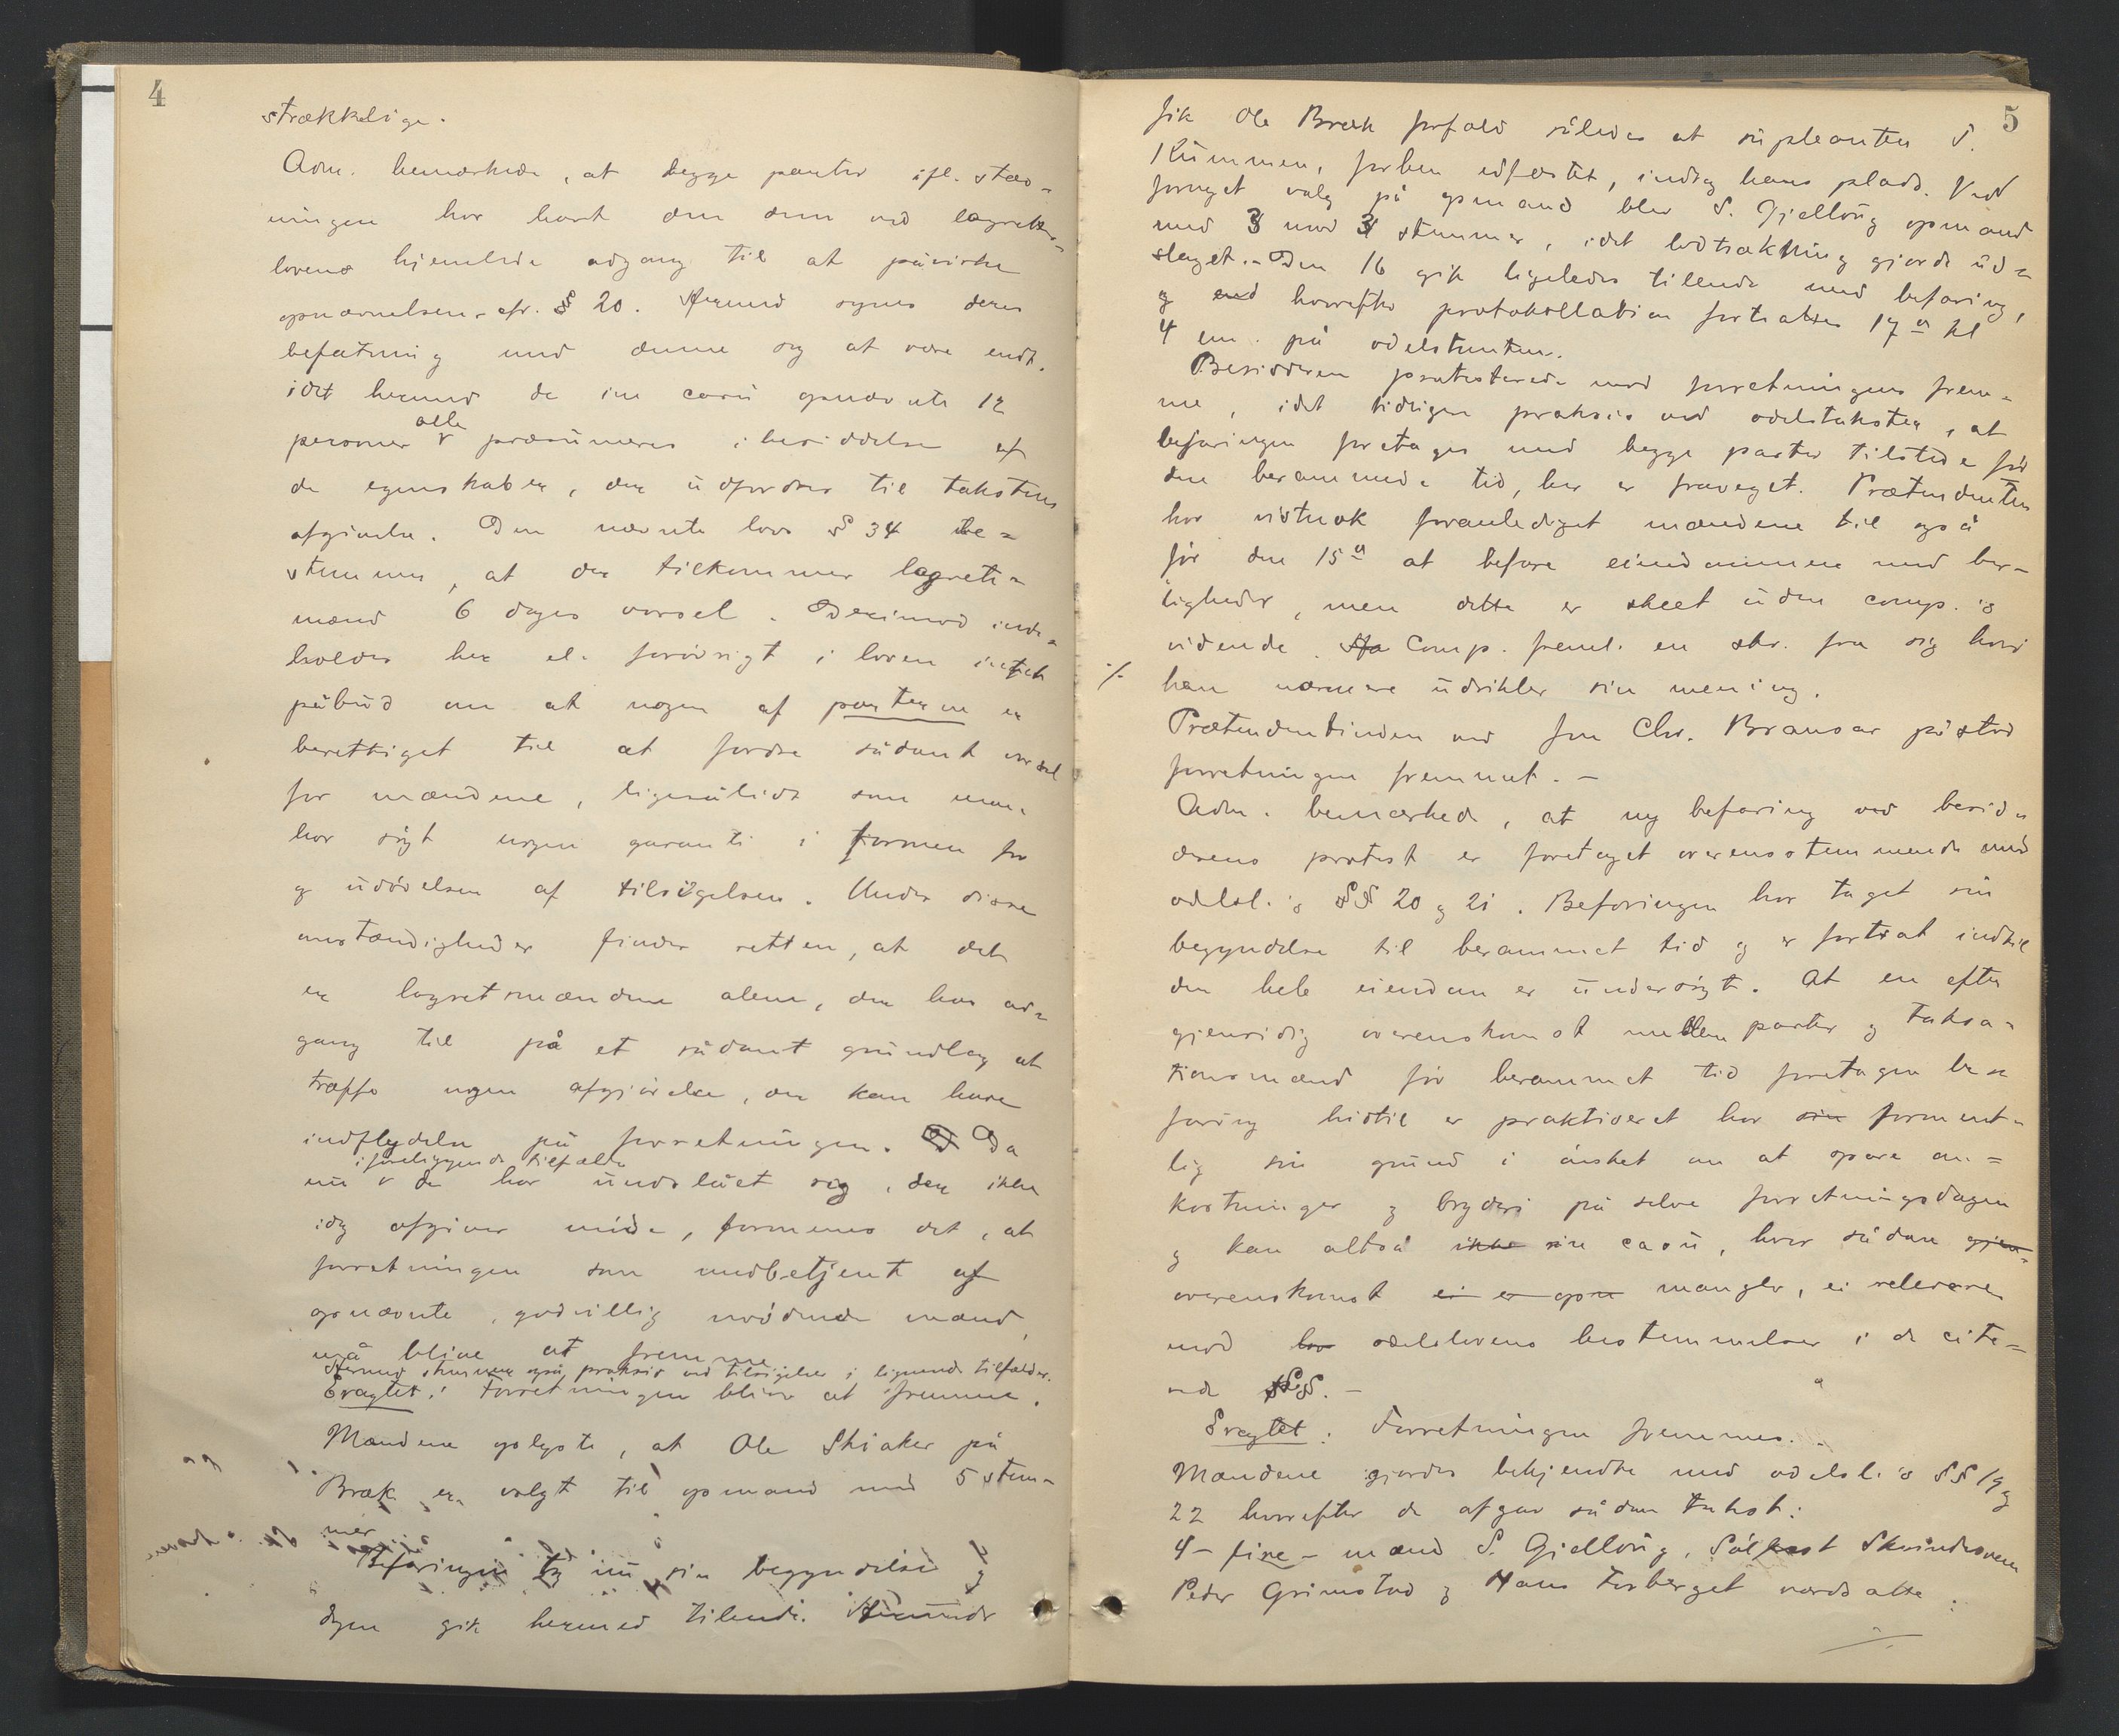 4
strækkelige.
Adm. bemærkede, at begge parter ifl. stæv-
ningen har havt den dem ved lagretts-
lovens hjemlede adgang til at påvirke
opnævnelsen, cfr. § 20. Hermed synes deres
befatning med denne sig at være endt,
idet hermed de in casu opnævnte 12
personer alle præsumeres i besiddelse af
de egenskaber, der udfordres til takstens
afgivelse. Den nævnte lovs § 34 be-
stemmer, at der tilkommer lagrets-
mænd 6 dages varsel. Derimod inde-
holdes her el. forøvrigt i loven intet
påbud om at nogen af parterne er
berettiget til at fordre sådant varsel
for mændene, ligesålidt som man
har søgt nogen garanti i formen for
og udøvelsen af tilsigelsen. Under disse
omstændigheder finder retten, at det
er lagretsmændene alene, der har ad-
gang til på et sådant grundlag at
træffe nogen afgjørelse, der kan have
indflydelse på forretningen. Da
i foreliggende tilfælde
nu de har undslået sig, der ikke
idag afgiver møde, formenes det, at
forretningen som medbetjent af
opnævnte, godvillig mødende mænd,
må blive at fremme
Hermed stemmer også praksis ved tilsigelser i lignende tilfælder.
Eragtet: Forretningen bliver at fremme.
Mændene oplyste, at Ole Skiaker på
Bræk er valgt til opmand med 5 stem-
mer
Befaringen tog nu sin begyndelse og
dagen gik hermed tilende. Herunder
5
fik Ole Bræk forfald således at supleanten S.
Kummen, forhen edfæstet, indtog hans plads. Ved
fornyet valg på opmand blev S. Gjelloug opmand
med 3 mod 3 stemmer, idet lodtrækning gjorde ud-
slaget. - Den 16 gik ligeledes tilende med befaring,
og hvorefter protokollation fortsattes 17de kl
4 em. på odelstomten.
Besidderen protesterede mod forretningens frem-
me, idet tidligere praksis ved odelstakster, at
befaringen foretages med begge parter tilstede før
den berammede tid, her er fraveget. Prætendenten
har vistnok foranlediget mændene til også
før den 15de at befare eiendommen med her-
ligheder, men dette er skeet uden comp.'s
vidende. Comp. freml. en skr. fra sig hvori
han nærmere udvikler sin mening.
Prætendentinden ved Chr. Bransar påstod
forretningen fremmet. -
Adm. bemærkede, at ny befaring ved besid-
derens protest er foretaget overensstemmende med
odelsl.'s §§ 20 og 21. Befaringen har taget sin
begyndelse til berammet tid og er fortsat indtil
den hele eiendom er undersøgt. At en efter
gjensidig overenskomst mellem parter og taksa-
tionsmænd før berammet tid foretagen be-
faring hidtil er praktiseret har sin forment-
lig sin grund i ønsket om at spare om-
kostninger og bryderi på selve forretningsdagen
og kan altså ikke in casu, hvor sådan gjen-
overenskomst ei er opn mangler, ei relevere
mod lov odelslovens bestemmelser i de cite-
rede §§. -
Eragtet: Forretningen fremmes.
Mændene gjordes bekjendte med odelsl.'s §§ 19 og
22 hvorefter de afgav sådan takst:
4 - fire - mænd S. Gjelloug, Sølfest
Peder Grimstad og Hans Forberget værdsatte: